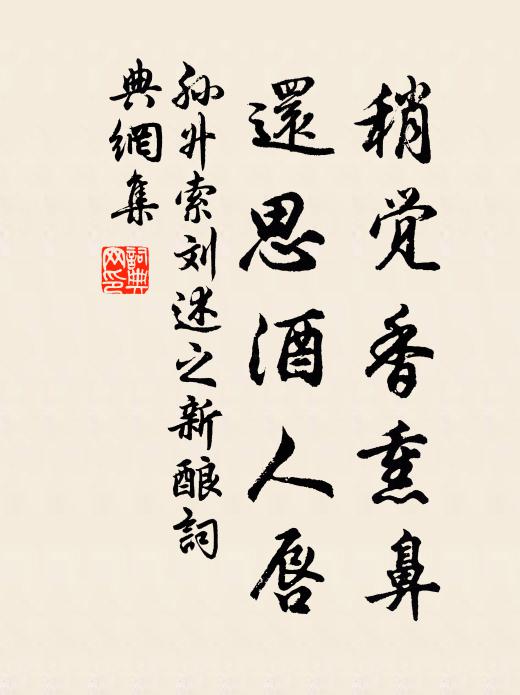 稍觉香熏鼻
還思酒人唇
孙升索刘述之新酿詞
典網集
詞典
网印